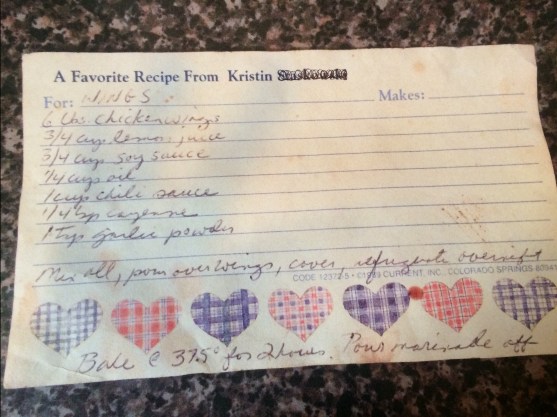 A Favorite Recipe From Kristin
For: WINGS Makes:
6 lbs. chicken wings
3/4 cup lemon juice
3/4 cup soy sauce
1/4 cup oil
1 cup chili sauce
1/4 tsp cayenne
1 tsp garlic powder
Mix all, pour over wings, cover, refrigerate overnight
CODE 12372-5 • ©1989 CURRENT, INC., COLORADO SPRINGS
Bake @ 375° for 2 hours. Pour marinade off